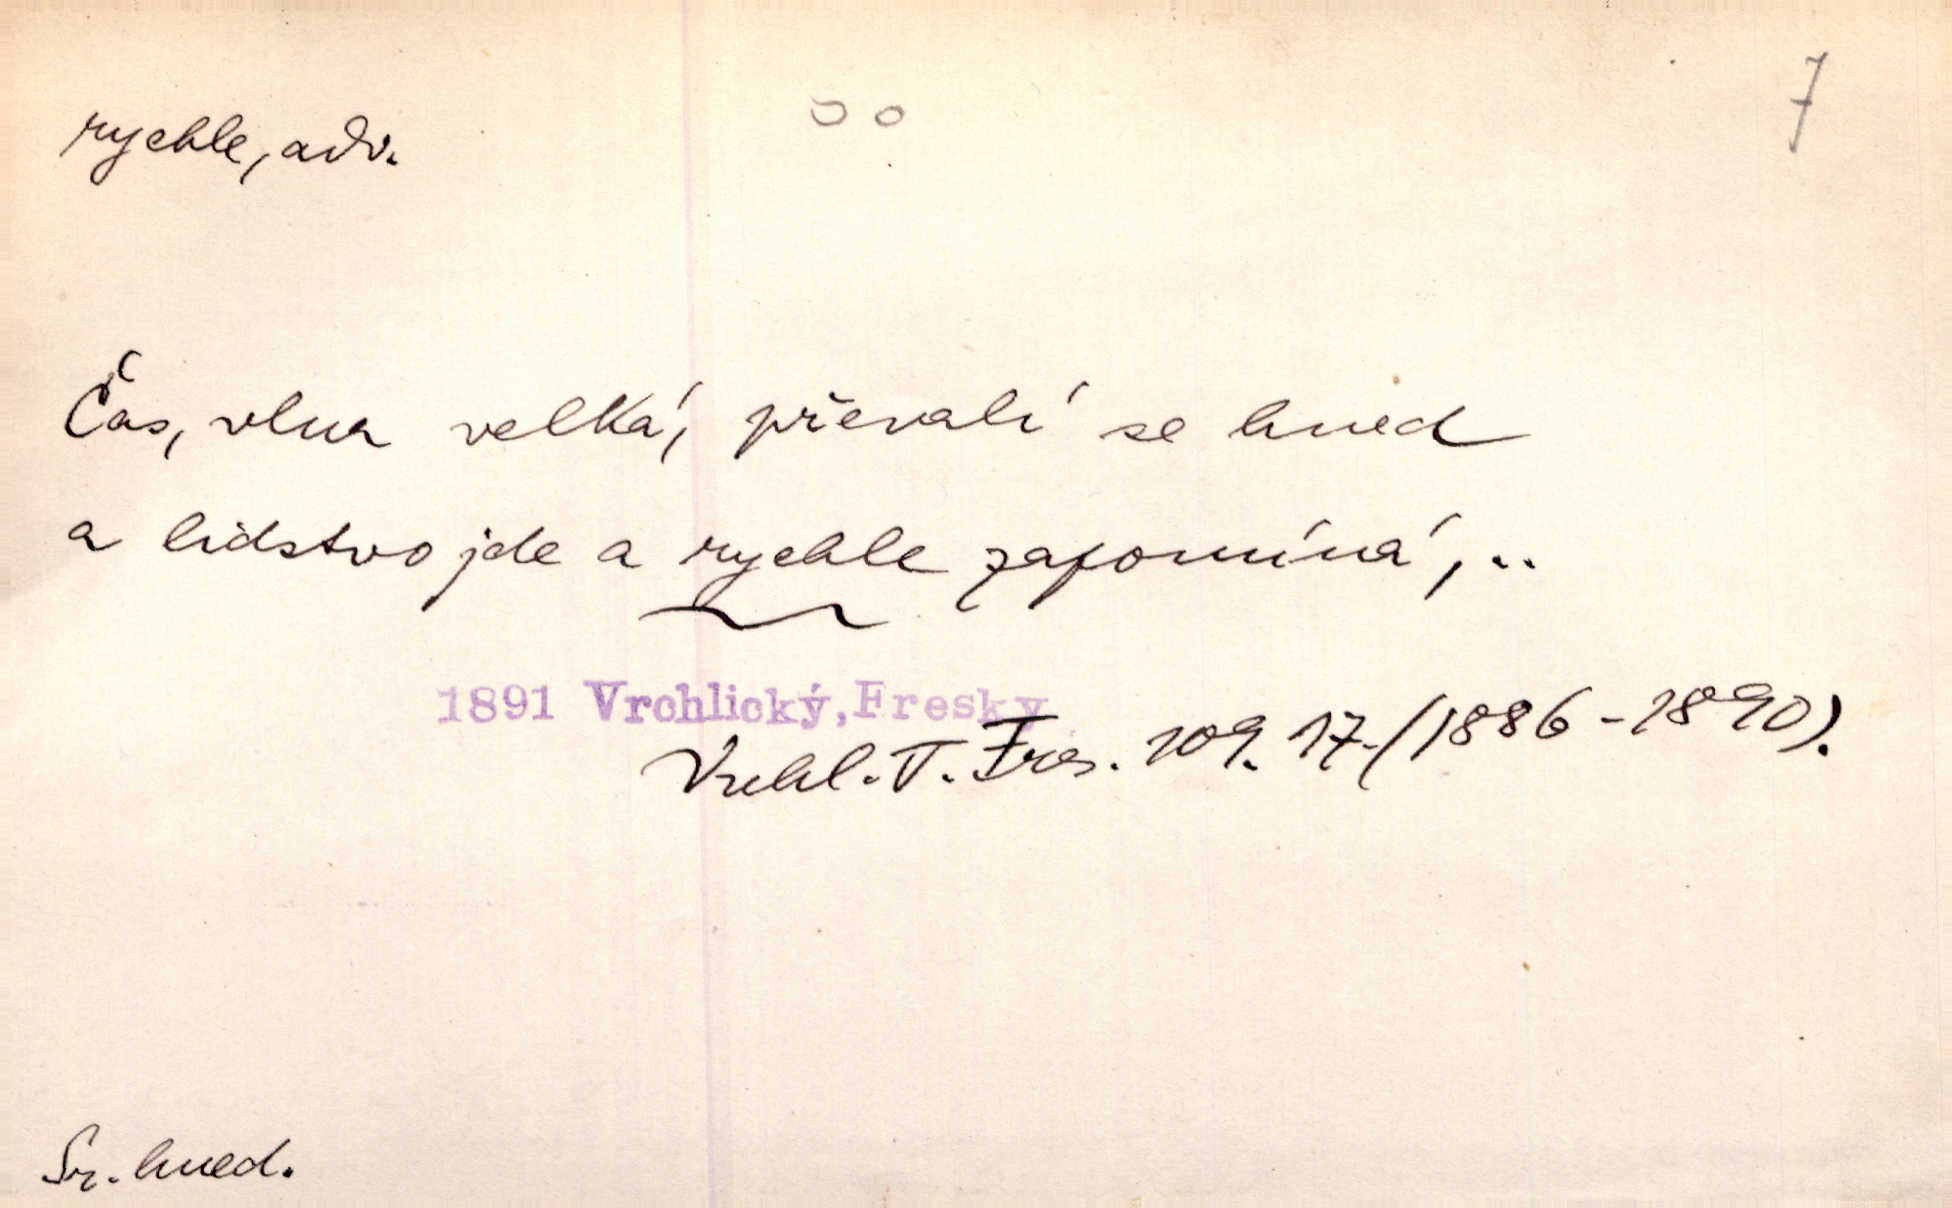 7
rychle, adv.
Čas, vlna velká, převalí se hned
a lidstvo jde a rychle zapomíná, ..
1891 Vrchlický, Fresky
Vrchl. T. Fres. 109. 17. (1886-1890).
Sr. hned.